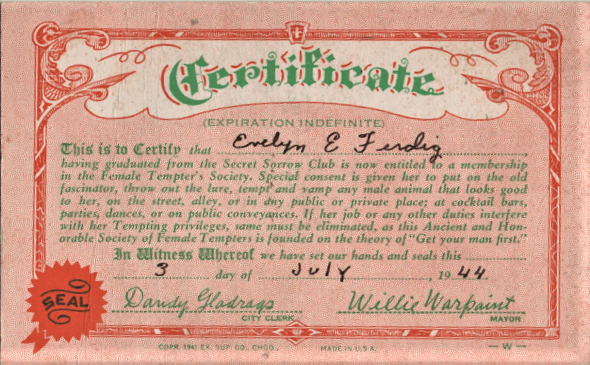 Certificate
(EXPIRATION INDEFINITE)
This is to Certify that Evelyn E Ferdig
having graduated from the Secret Sorrow Club is now entitled to a membership
in the Female Tempter's Society. Special consent is given her to put on the old
fascinator, throw out the lure, tempt and vamp any male animal that looks good
to her, on the street, alley, or in any public or private place; at cocktail bars,
parties, dances, or on public conveyances. If her job or any other duties interfere
with her Tempting privileges, same must be eliminated, as this Ancient and Hon-
orable Society of Female Tempters is founded on the theory of "Get your man first."
In Witness Whereof we have set our hands and seals this
3 day of July, 1944
SEAL
Dandy Gladrags Willie Warpaint
CITY CLERK MAYOR
COPR. 1941 EX. SUP. CO., CHGO., MADE IN U.S.A. —W—